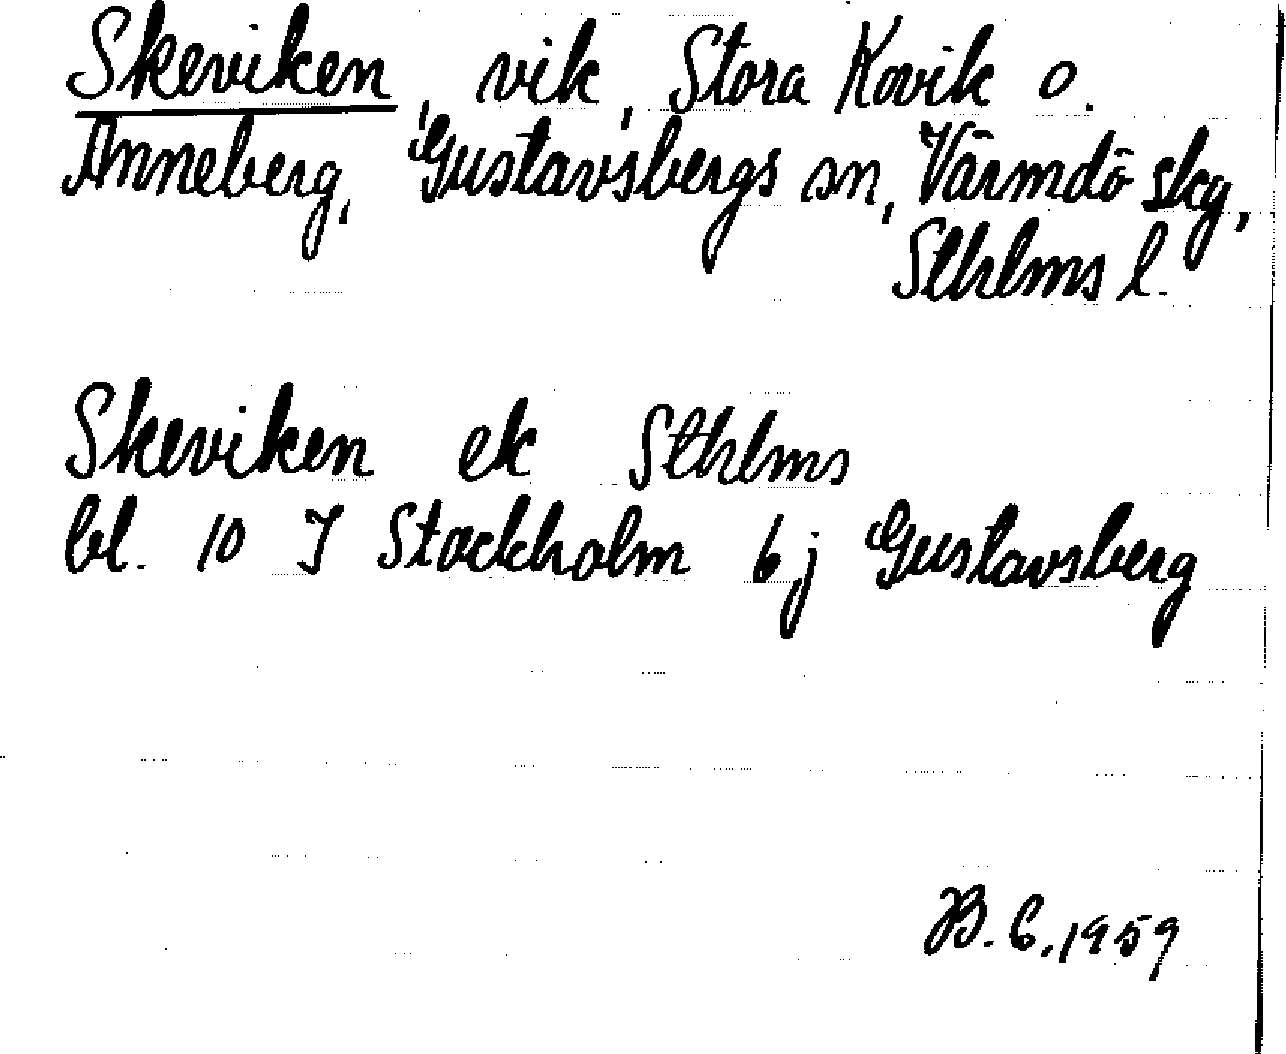 Skeviken, vik, Stora Kovik o.
Anneberg, Gustavsbergs sn, Värmdö skg,
Sthlms l.
Skeviken ek Sthlms
bl. 10 I Stockholm 6 j Gustavsberg
B. C. 1959